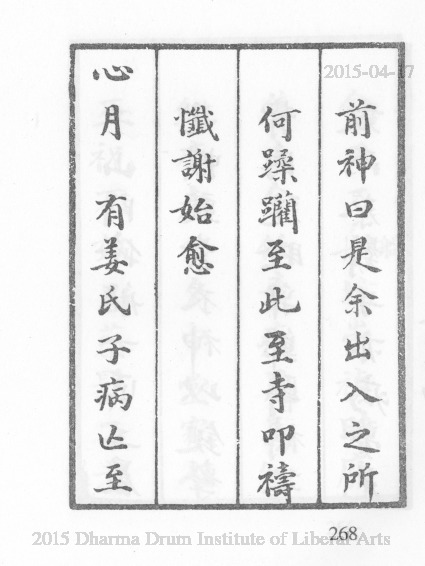 2015-04-17
前神曰是余出入之所
何躁躪至此至寺叩禱
懺謝始愈
心月 有姜氏子病亾至
268
2015 Dharma Drum Institute of Liberal Arts